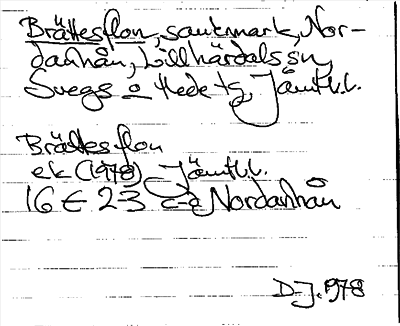 Brättesflon, sankmark, Nor-
danhån, Lillhärdals sn,
Svegs o Hede tg, Jämtl.l.
Brättesflon
ek (1978) Jämtl.l.
16 E 2-3 c-d Nordanhån
D-J. 978